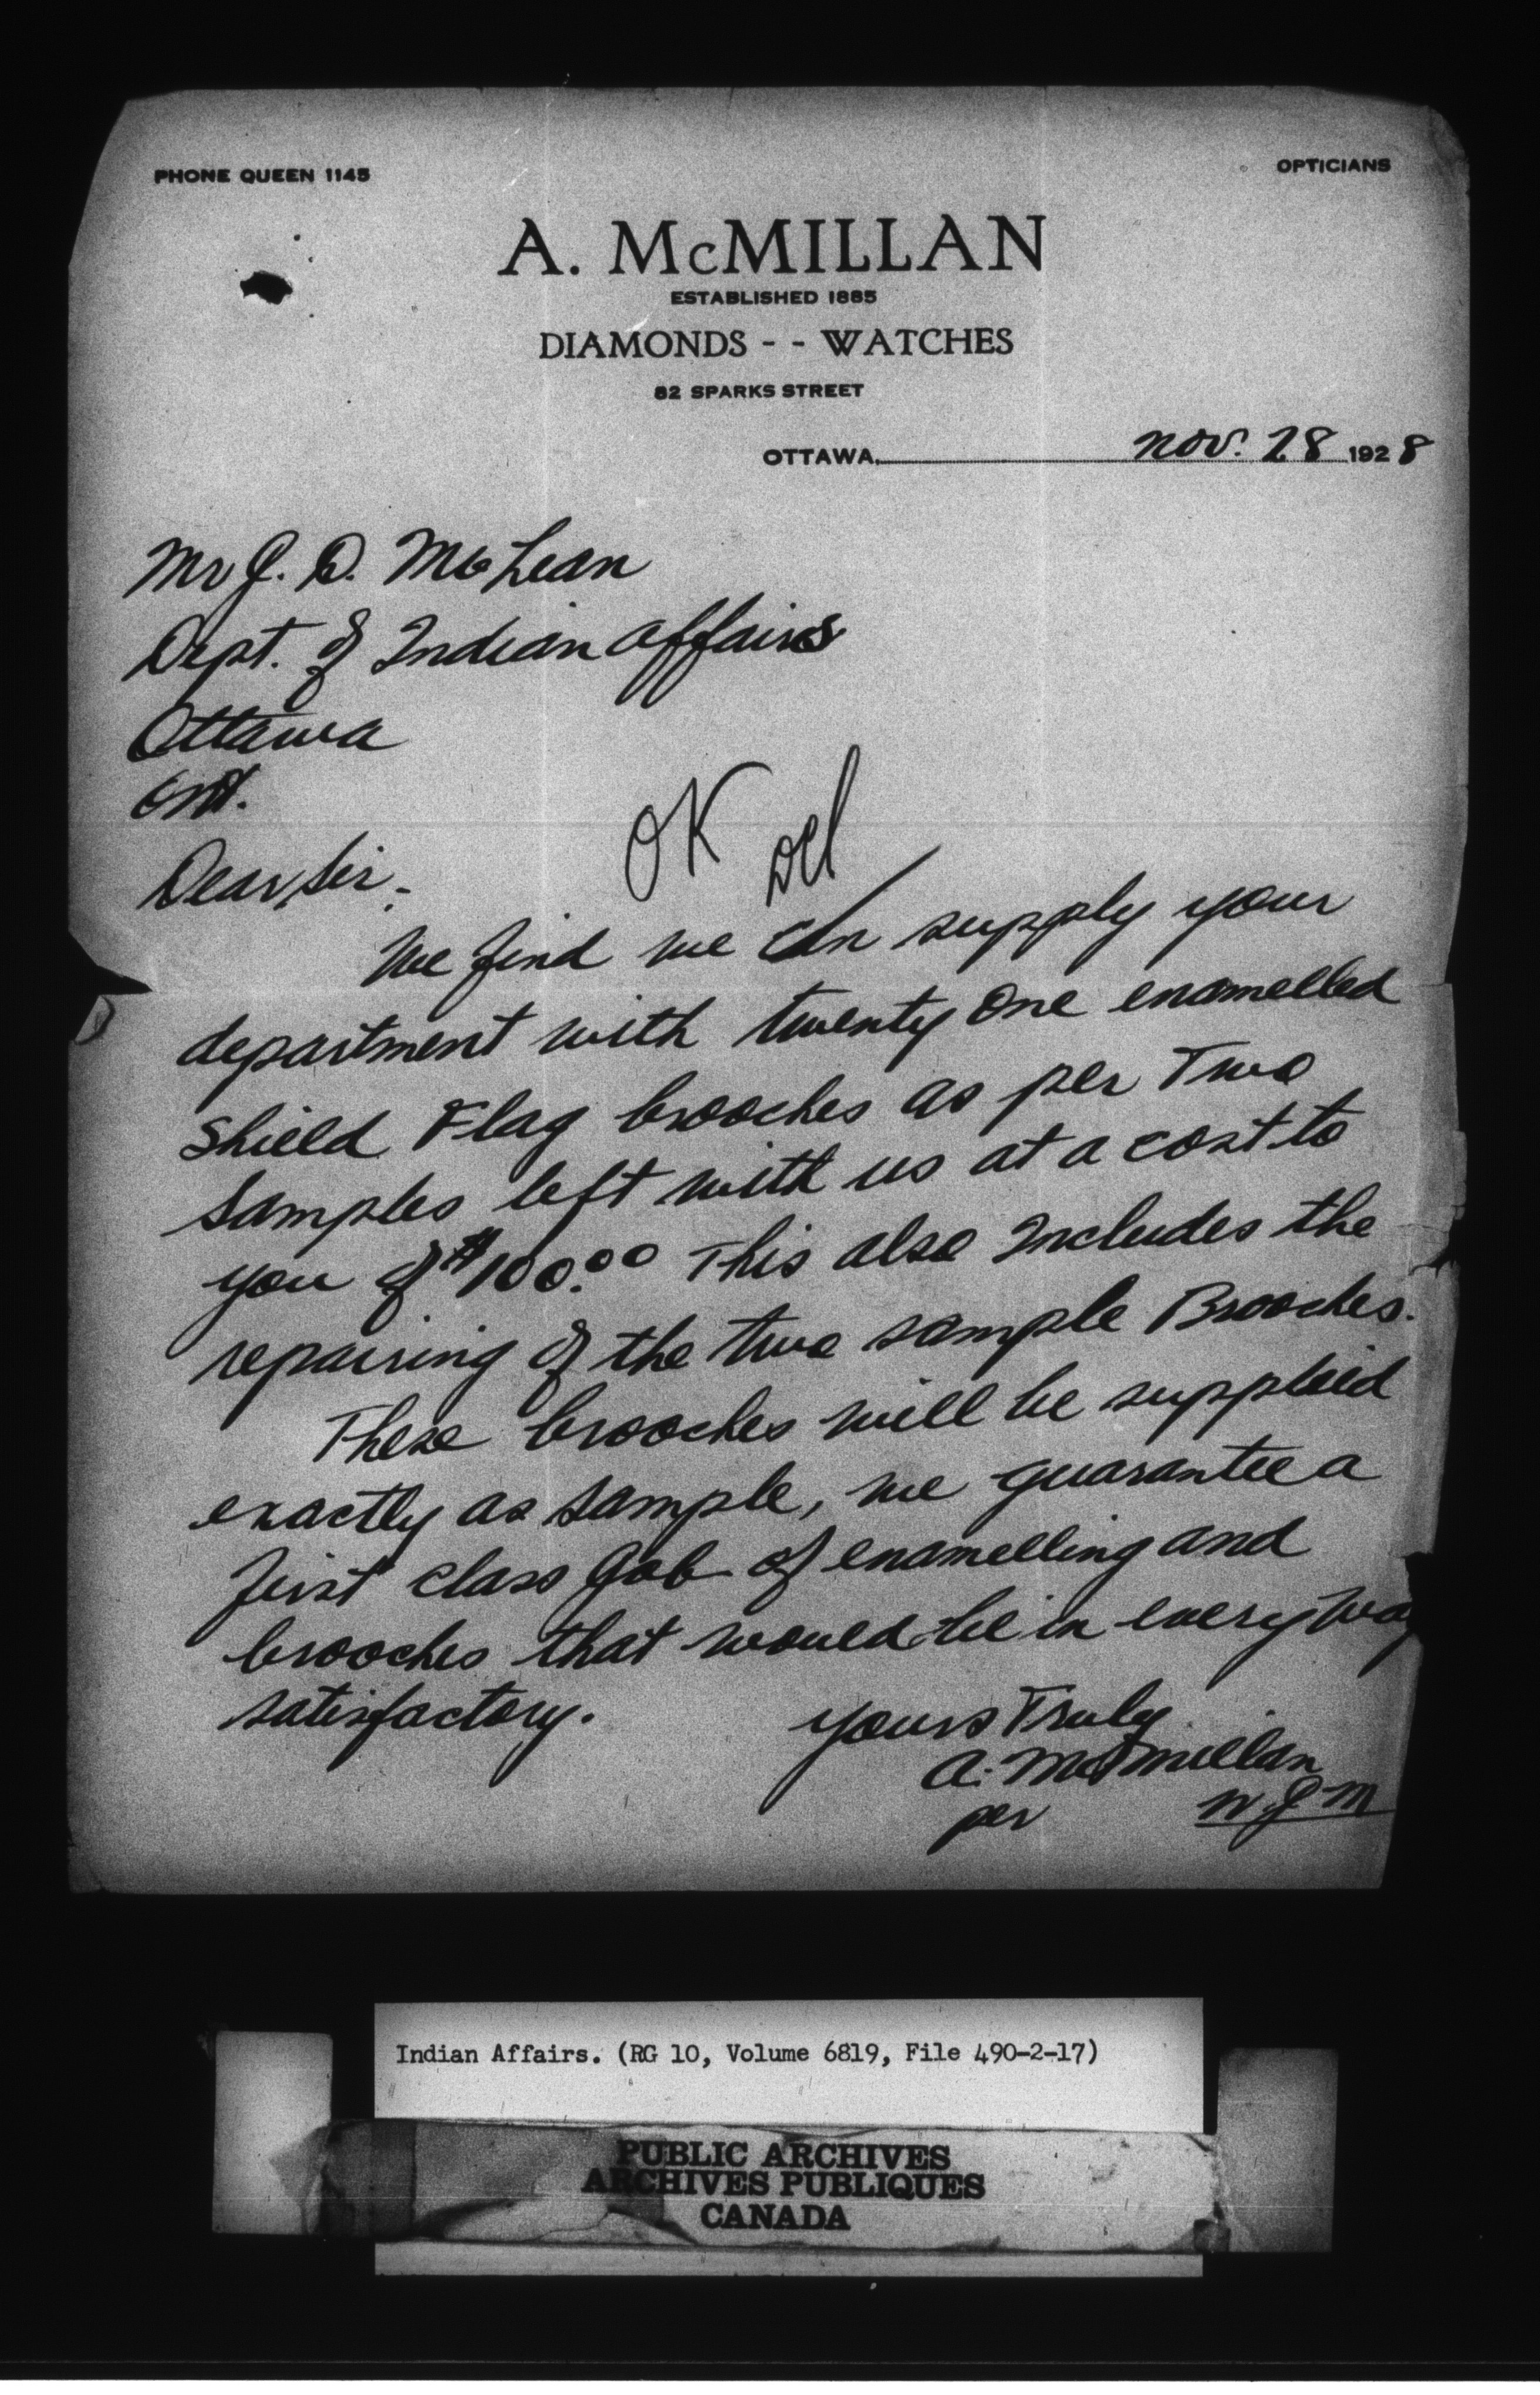 PHONE QUEEN 1145
OPTICIANS
A. McMILLAN
ESTABLISHED 1885
DIAMONDS - - WATCHES
82 SPARKS STREET
OTTAWA, Nov. 28 1928
Mr J. D. McLean
Dept. of Indian Affairs
Ottawa
Ont.
OK
Dear Sir,-
We find we can supply your
department with twenty one enamelled
shield Flag brooches as per Two
samples left with us at a cost to
you of $100.00 This also Includes the
repairing of the two sample Brooches.
These brooches will be supplied
exactly as sample, we guarantee a
first class Job of enamelling and
brooches that would be in every way
satisfactory.
Yours Truly
A. McMillan
per W.J.M
Indian Affairs. (RG 10, Volume 6819, File 490-2-17)
PUBLIC ARCHIVES
ARCHIVES PUBLIQUES
CANADA